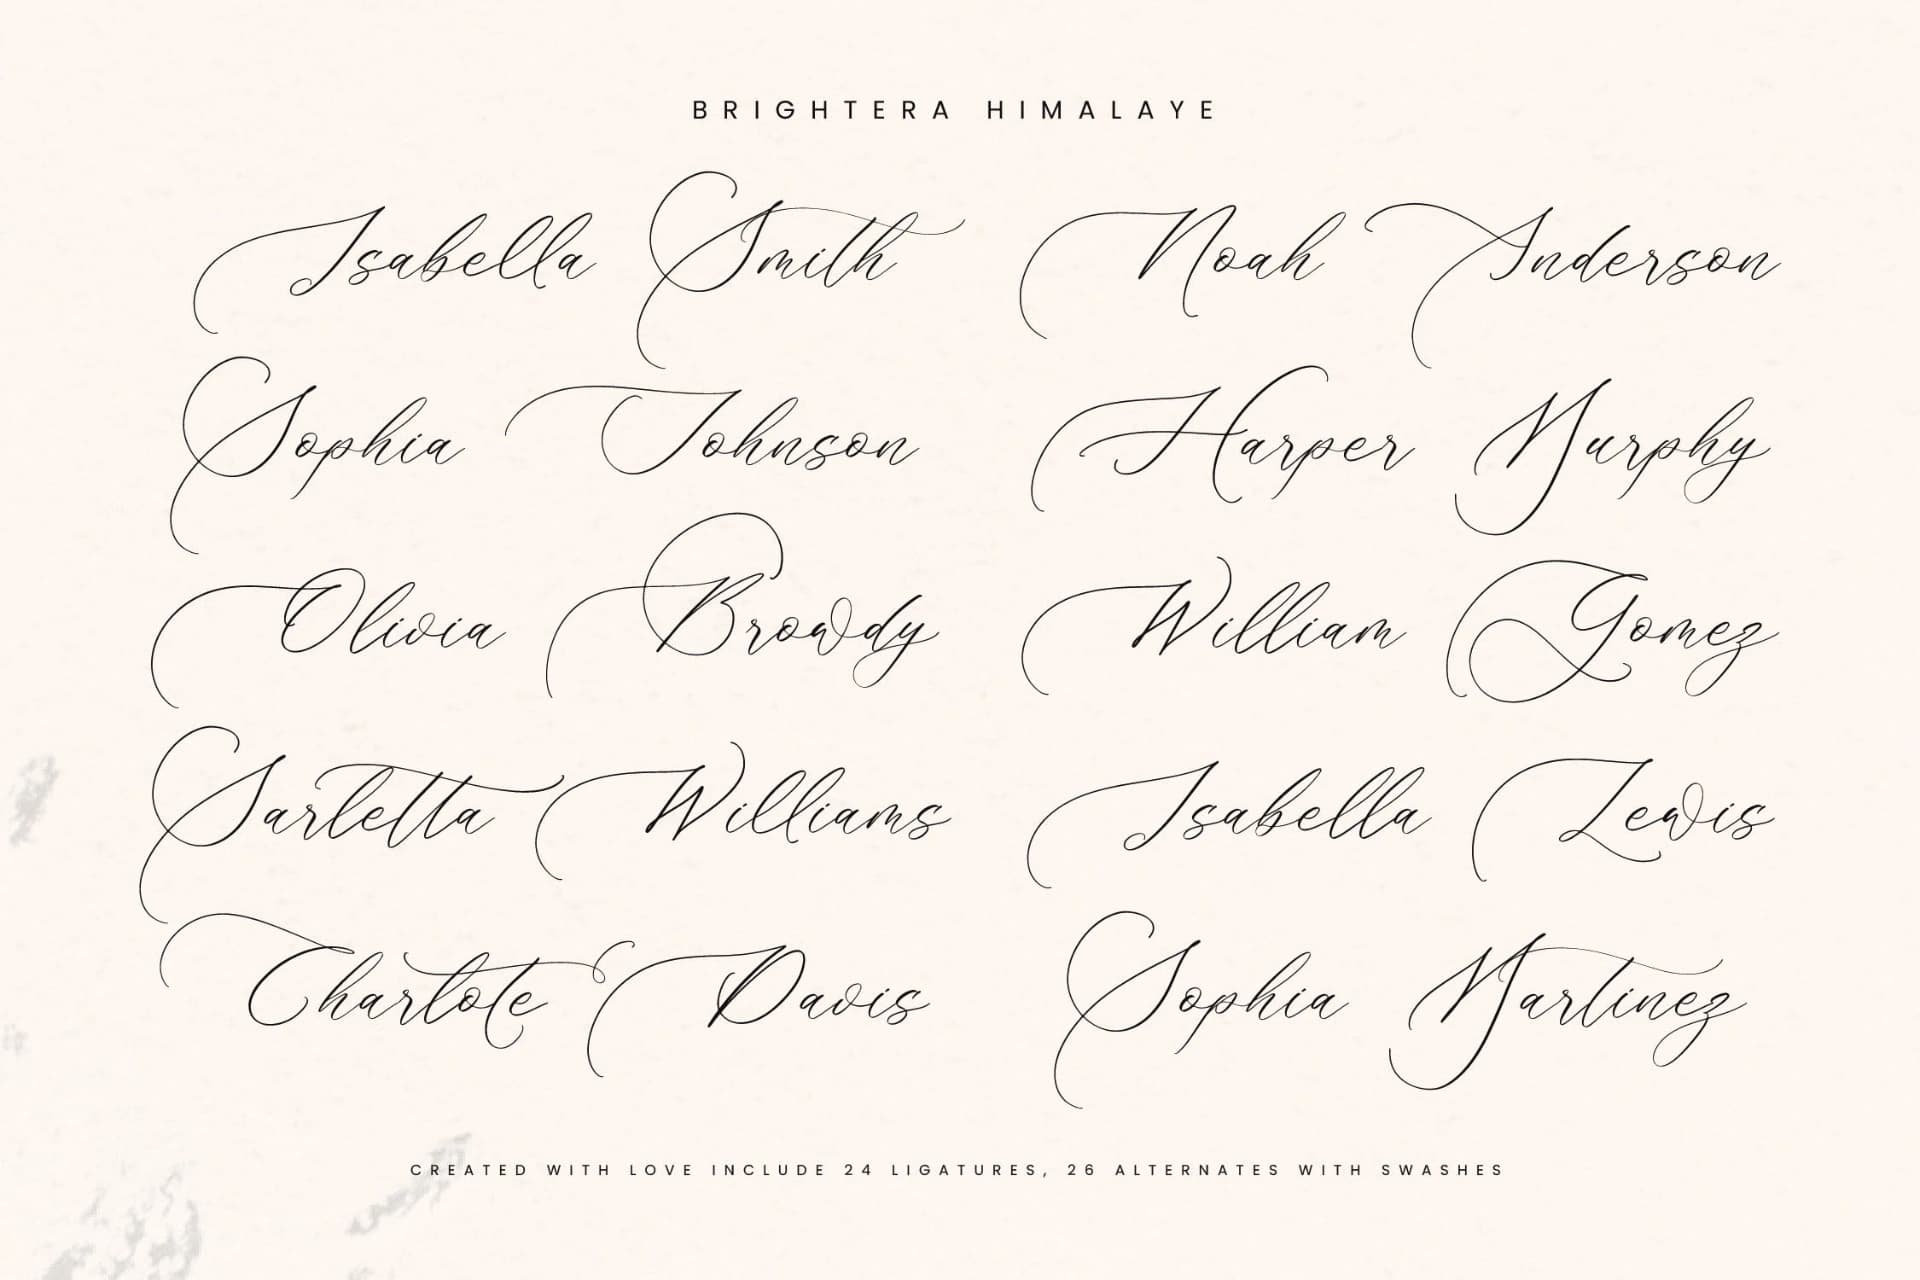 BRIGHTERA HIMALAYE
Isabella Smith
Noah Anderson
Sophia Johnson
Harper Murphy
Olivia Browdy
William Gomez
Sarletta Williams
Isabella Lewis
Charlote Davis
Sophia Martinez
CREATED WITH LOVE INCLUDE 24 LIGATURES, 26 ALTERNATES WITH SWASHES